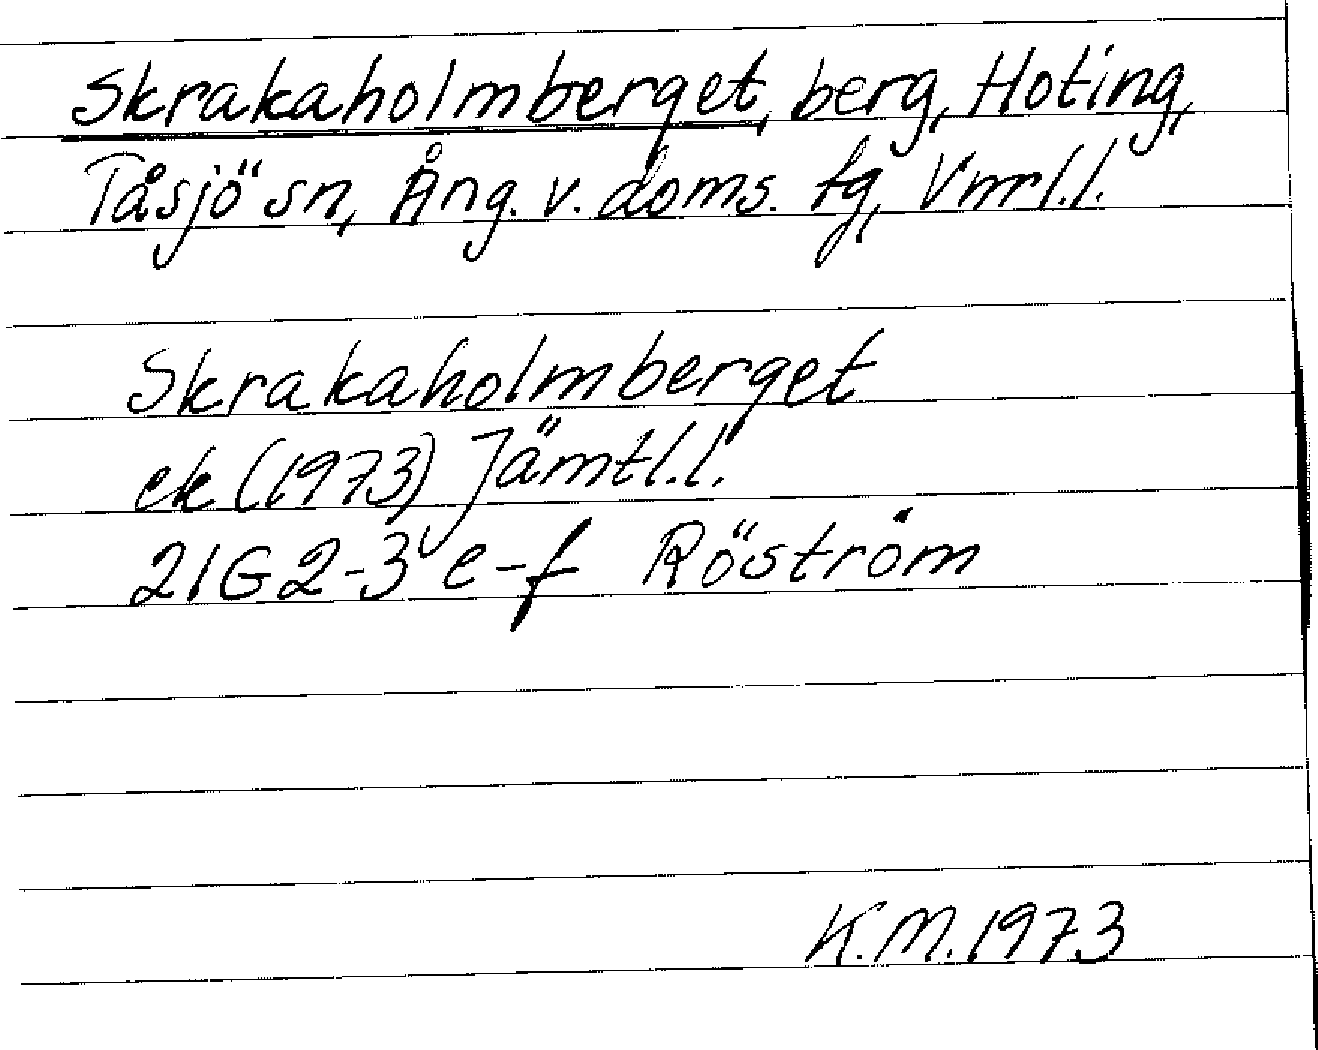 Skrakaholmberget, berg, Hoting,
Tåsjö sn, Ång. v. doms. tg, Vnrl.l.
Skrakaholmberget
ek (1973) Jämtl.l.
21G 2-3 e-f Röström
K.M. 1973